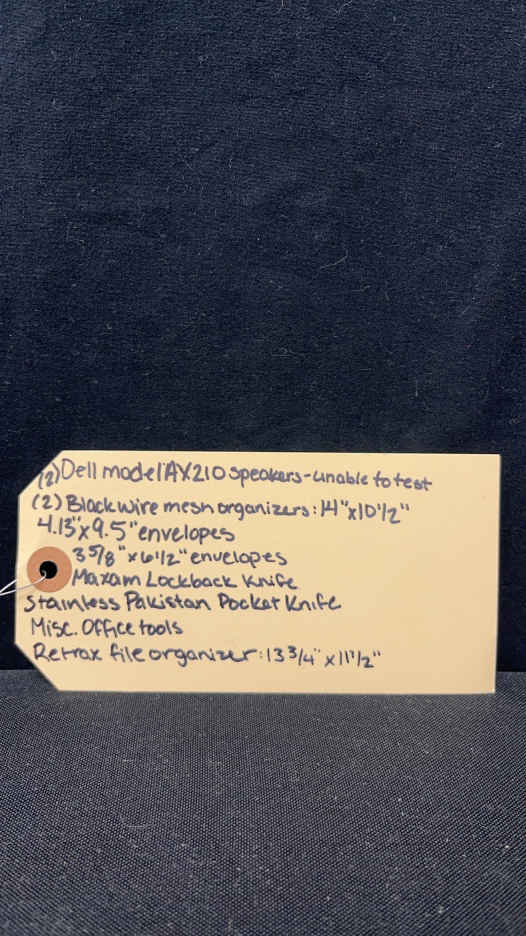 (2) Dell model AX210 speakers - unable to test
(2) Black wire mesh organizers: 14"x10 1/2"
4.13"x9.5" envelopes
3 5/8" x 6 1/2" envelopes
Maxam Lockback Knife
Stainless Pakistan Pocket Knife
Misc. Office tools
Retrax file organizer: 13 3/4" x 11 1/2"